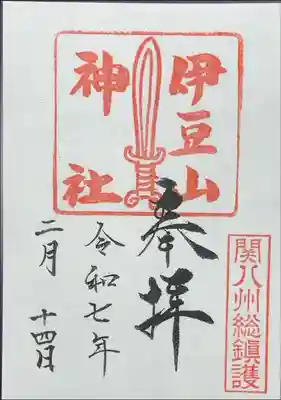 伊豆山
神社
奉拝
令和七年
二月 十四日
関八州総鎮護